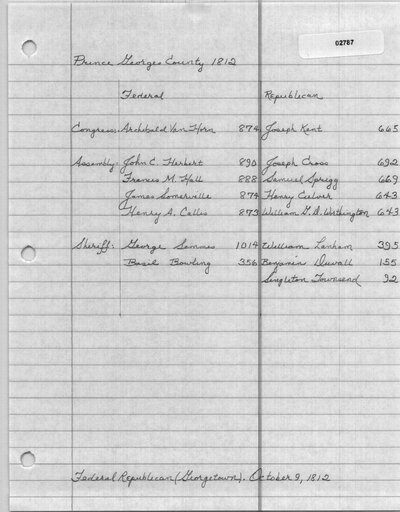 02787
Prince Georges County 1812
Federal Republican
Congress: Archibald Van Horn 874 Joseph Kent 665
Assembly: John C. Herbert 890 Joseph Cross 692
Francis M. Hall 888 Samuel Sprigg 669
James Somerville 874 Henry Culver 643
Henry A. Callis 873 William G. D. Worthington 643
Sheriff: George Semmes 1014 William Lanham 395
Basil Bowling 356 Benjamin Duvall 155
Singleton Townsend 92
Federal Republican (Georgetown). October 9, 1812